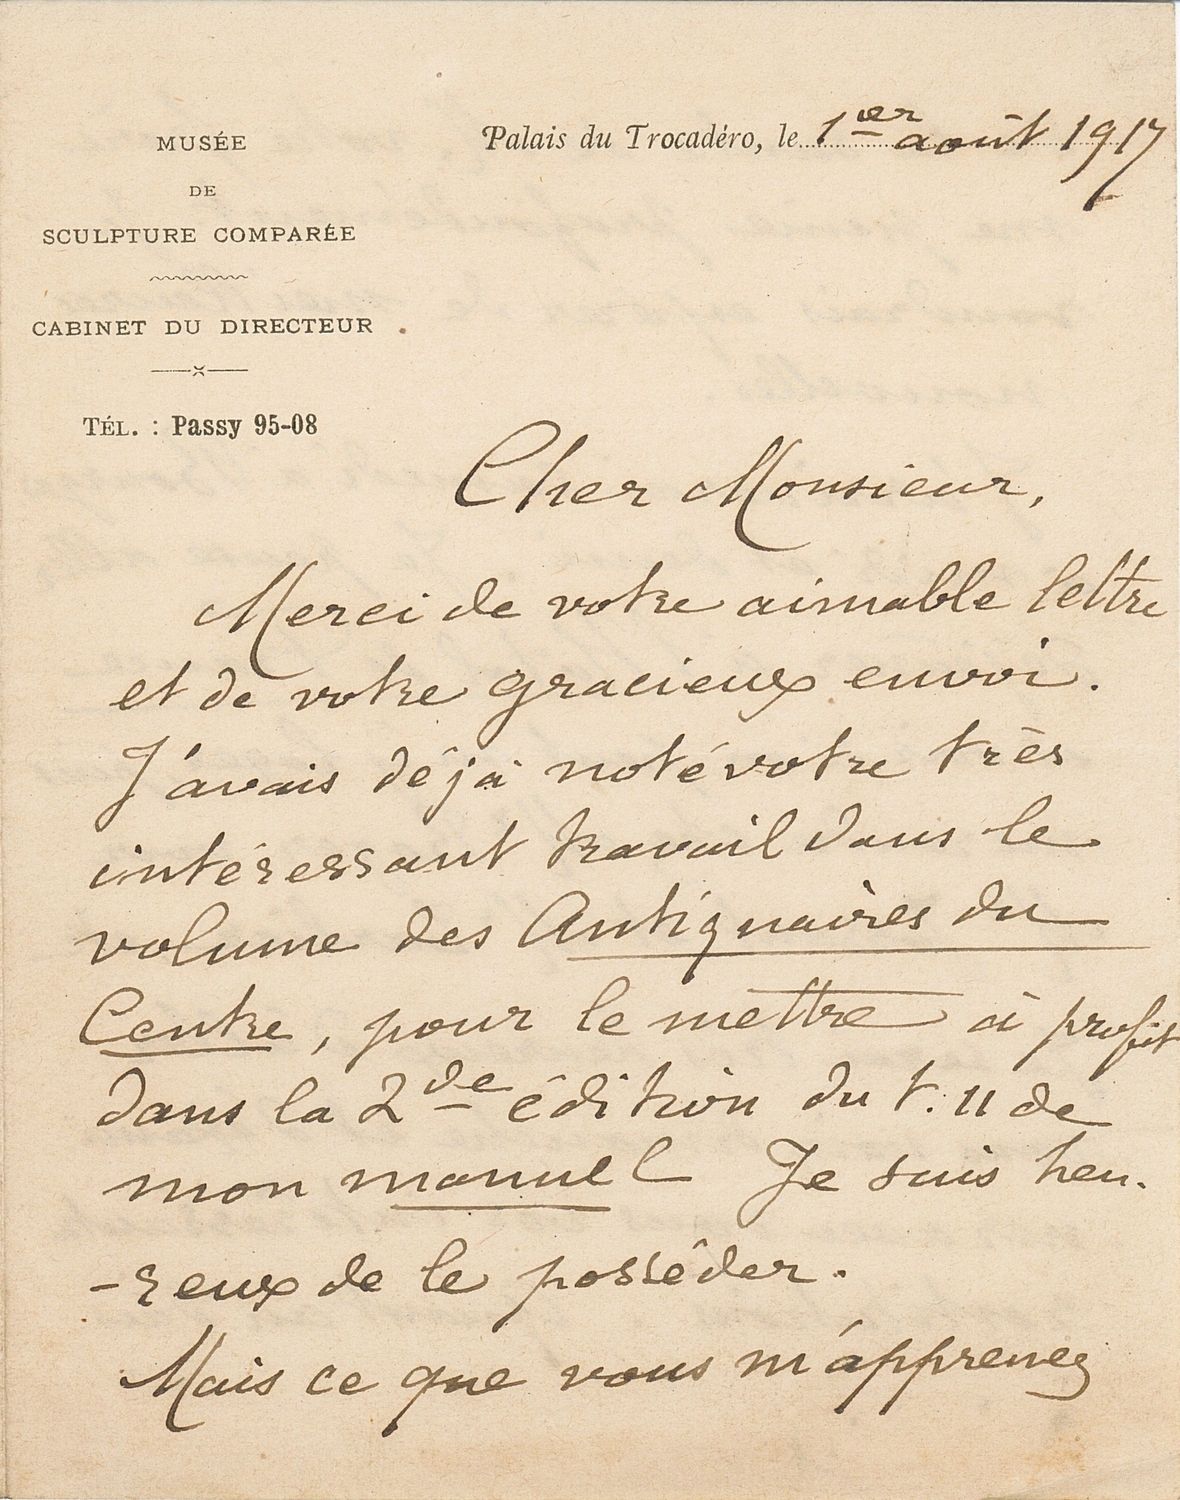 MUSÉE
DE
SCULPTURE COMPARÉE
CABINET DU DIRECTEUR
TÉL. : Passy 95-08
Palais du Trocadéro, le 1er août 1917
Cher Monsieur,
Merci de votre aimable lettre
et de votre gracieux envoi.
J'avais déjà noté votre très
intéressant travail dans le
volume des Antiquaires du
Centre, pour le mettre à profit
dans la 2de édition du t. II de
mon manuel Je suis heu-
-reux de le posséder.
Mais ce que vous m'apprenez